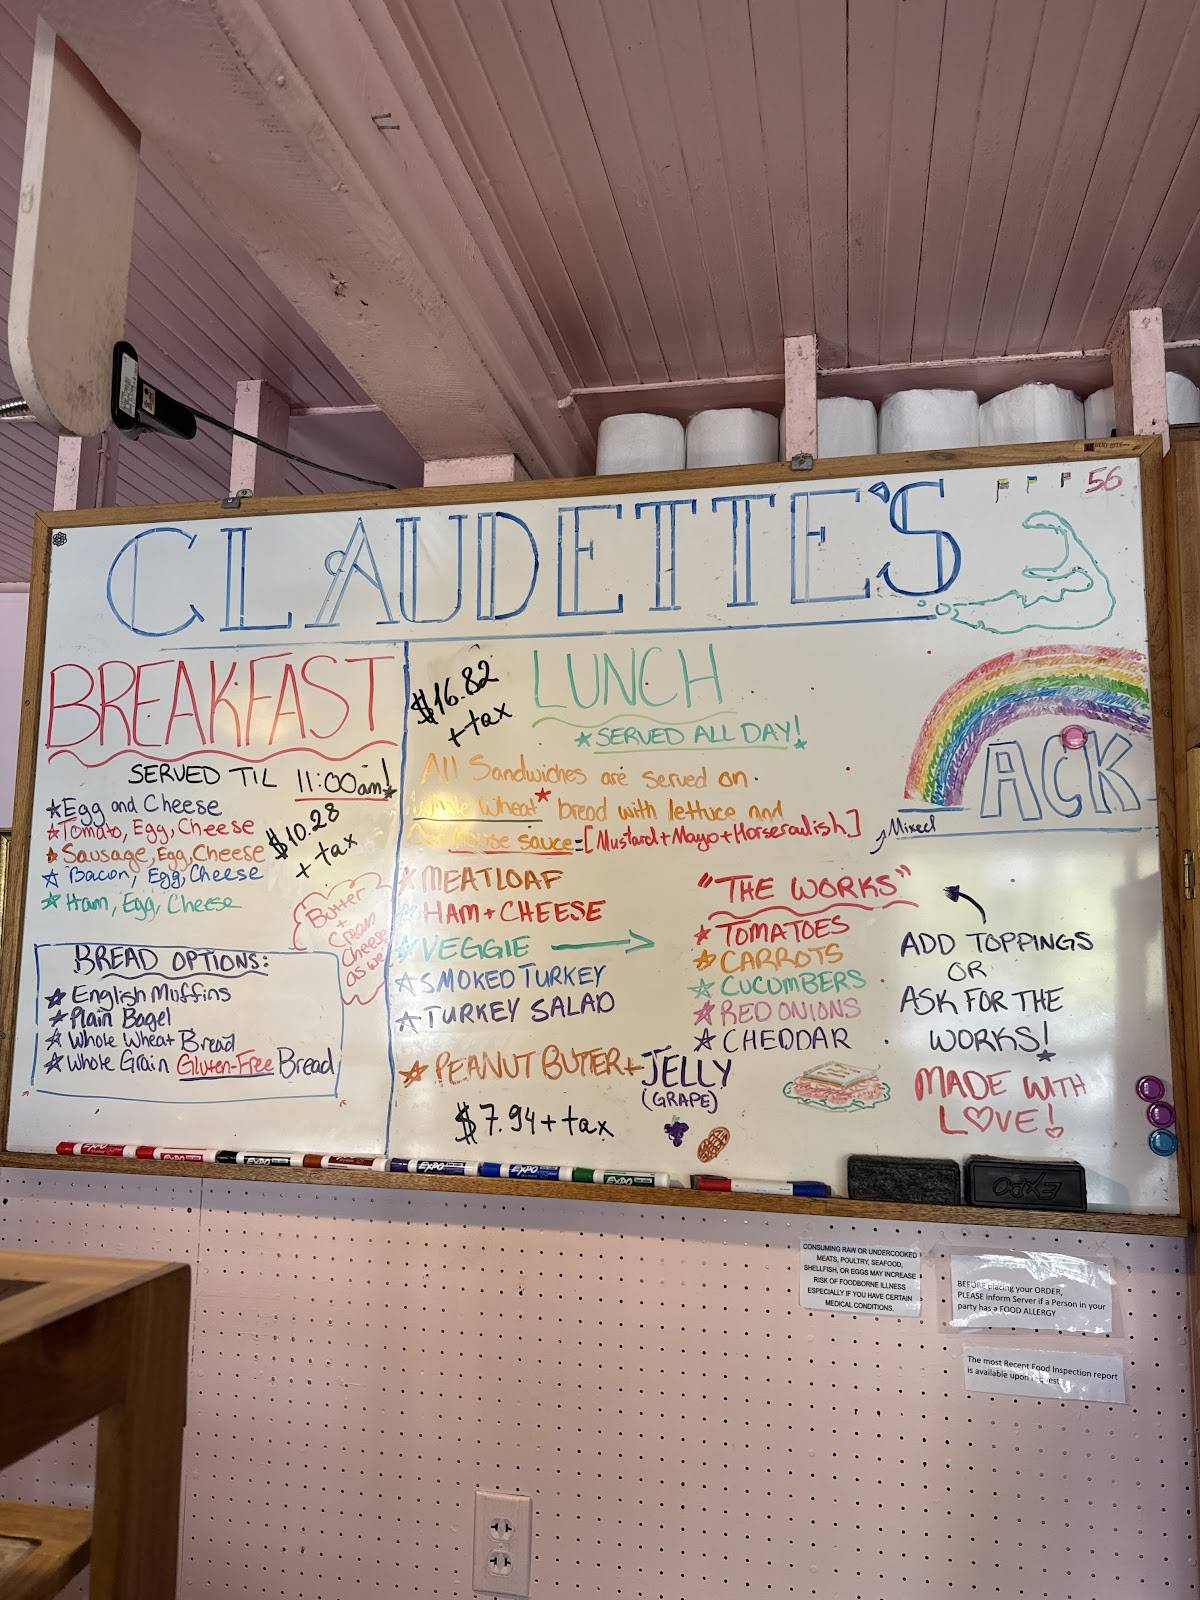 CLAUDETTE'S
56
BREAKFAST
SERVED TIL 11:00am!
★Egg and Cheese
★Tomato, Egg, Cheese
★Sausage, Egg, Cheese
★Bacon, Egg, Cheese
★Ham, Egg, Cheese
$10.28
+ tax
Butter
+
Cream
Cheese
as well
BREAD OPTIONS:
★English Muffins
★Plain Bagel
★Whole Wheat Bread
★Whole Grain Gluten-Free Bread
$16.82
+ tax
LUNCH
★SERVED ALL DAY!
All Sandwiches are served on
wheat★ bread with lettuce and
sauce=[Mustard+Mayo+Horseradish]
Mixed
★MEATLOAF
★HAM+CHEESE
★VEGGIE →
★SMOKED TURKEY
★TURKEY SALAD
★PEANUT BUTTER+JELLY
(GRAPE)
$7.94+tax
"THE WORKS"
★TOMATOES
★CARROTS
★CUCUMBERS
★RED ONIONS
★CHEDDAR
ACK
ADD TOPPINGS
OR
ASK FOR THE
WORKS!
MADE WITH
L♡VE!
EXPO
EXPO
EXPO
EXPO
EXPO
EXPO
EXPO
CONSUMING RAW OR UNDERCOOKED
MEATS, POULTRY, SEAFOOD,
SHELLFISH, OR EGGS MAY INCREASE
RISK OF FOODBORNE ILLNESS
ESPECIALLY IF YOU HAVE CERTAIN
MEDICAL CONDITIONS.
BEFORE placing your ORDER,
PLEASE inform Server if a Person in your
party has a FOOD ALLERGY
The most Recent Food Inspection report
is available upon request